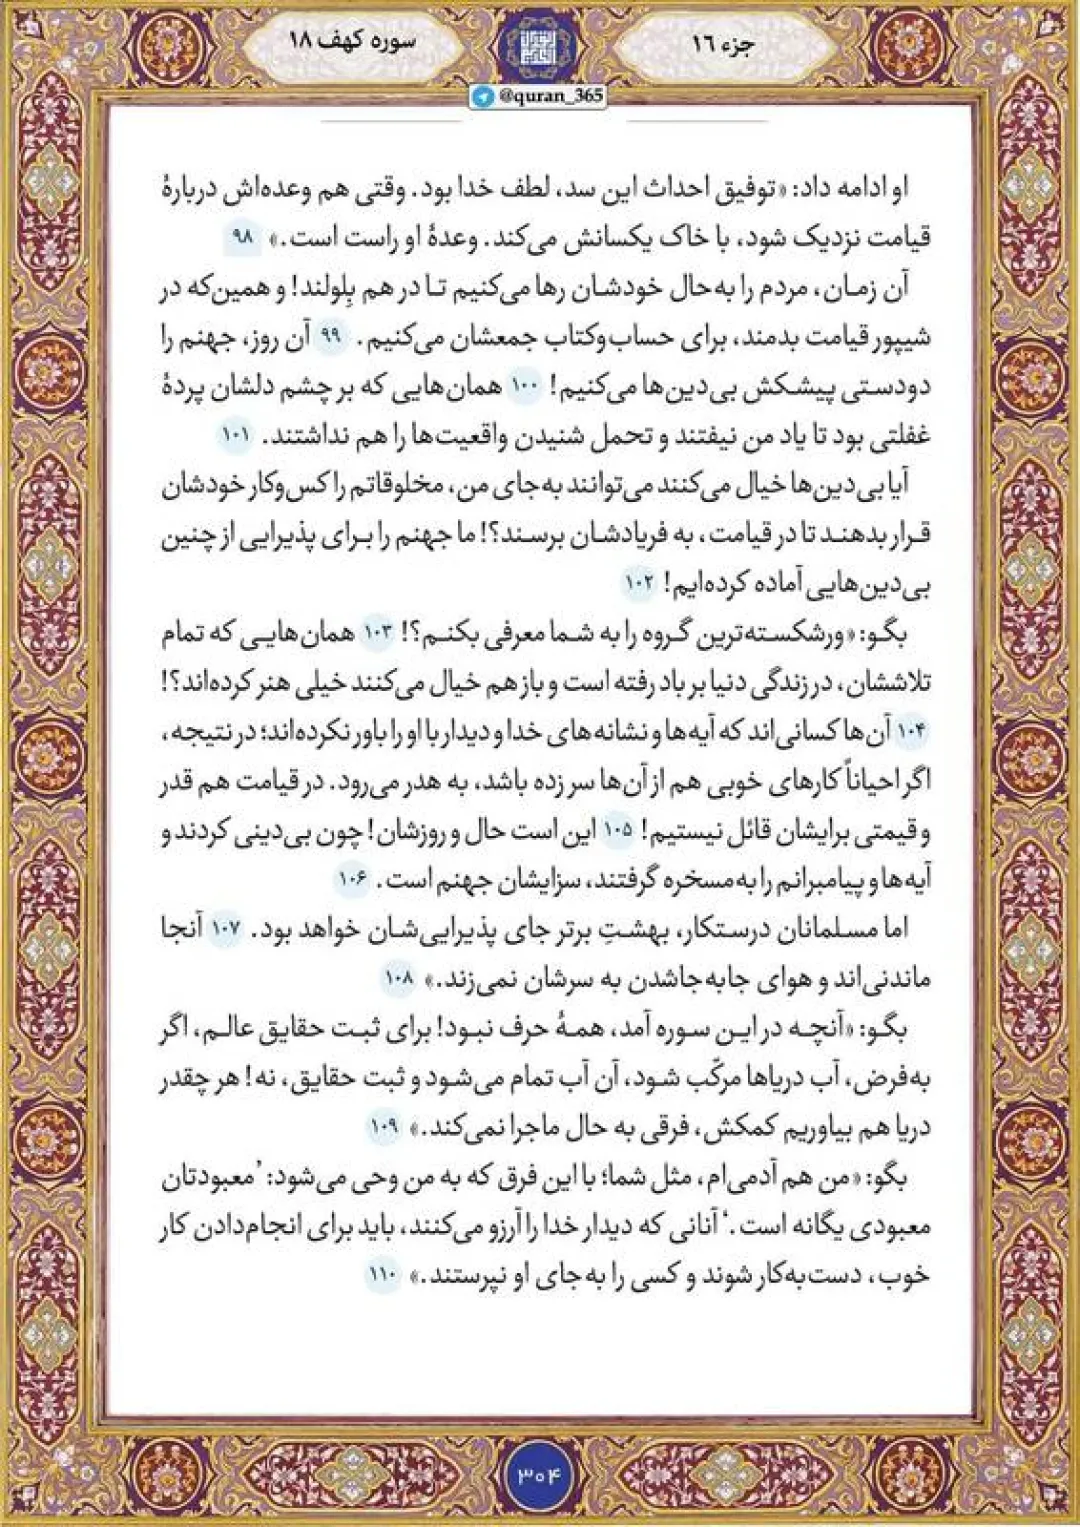 جزء ۱۶
سوره کهف ۱۸
@quran_365
او ادامه داد: «توفیق احداث این سد، لطف خدا بود. وقتی هم وعده‌اش دربارهٔ
قیامت نزدیک شود، با خاک یکسانش می‌کند. وعدهٔ او راست است.» ۹۸
آن زمـان، مردم را به‌حال خودشـان رها می‌کنیم تـا در هم بِلولند! و همین‌که در
شیپور قیامت بدمند، برای حساب‌وکتاب جمعشان می‌کنیم. ۹۹ آن روز، جهنم را
دودسـتی پیشـکش بی‌دین‌ها می‌کنیم! ۱۰۰ همان‌هایی که بر چشم دلشان پردهٔ
غفلتی بود تا یاد من نیفتند و تحمل شنیدن واقعیت‌ها را هم نداشتند. ۱۰۱
آیا بی‌دین‌ها خیال می‌کنند می‌توانند به‌جای من، مخلوقاتم را کس‌وکار خودشان
قـرار بدهنـد تا در قیامت، به فریادشـان برسـند؟! ما جهنم را بـرای پذیرایی از چنین
بی‌دین‌هایی آماده کرده‌ایم! ۱۰۲
بگـو: «ورشکسـته‌ترین گـروه را به شـما معرفی بکنـم؟! ۱۰۳ همان‌هایـی که تمام
تلاششان، در زندگی دنیا بر باد رفته است و باز هم خیال می‌کنند خیلی هنر کرده‌اند؟!
۱۰۴ آن‌ها کسانی‌اند که آیه‌ها و نشانه‌های خدا و دیدار با او را باور نکرده‌اند؛ در نتیجه،
اگر احیاناً کارهای خوبی هم از آن‌ها سر زده باشد، به هدر می‌رود. در قیامت هم قدر
و قیمتی برایشان قائل نیستیم! ۱۰۵ این است حال و روزشان! چون بی‌دینی کردند و
آیه‌ها و پیامبرانم را به‌مسخره گرفتند، سزایشان جهنم است. ۱۰۶
اما مسـلمانان درسـتکار، بهشـتِ برتر جای پذیرایی‌شـان خواهد بود. ۱۰۷ آنجا
ماندنی‌اند و هوای جابه‌جاشدن به سرشان نمی‌زند.» ۱۰۸
بگـو: «آنچـه در ایـن سـوره آمد، همـهٔ حرف نبـود! برای ثبـت حقایق عالـم، اگر
به‌فرض، آب دریاها مرکّب شـود، آن آب تمام می‌شود و ثبت حقایق، نه! هر چقدر
دریا هم بیاوریم کمکش، فرقی به حال ماجرا نمی‌کند.» ۱۰۹
بگو: «من هم آدمی‌ام، مثل شما؛ با این فرق که به من وحی می‌شود: ’معبودتان
معبودی یگانه است.‘ آنانی که دیدار خدا را آرزو می‌کنند، باید برای انجام‌دادن کار
خوب، دست‌به‌کار شوند و کسی را به‌جای او نپرستند.» ۱۱۰
۳۰۴